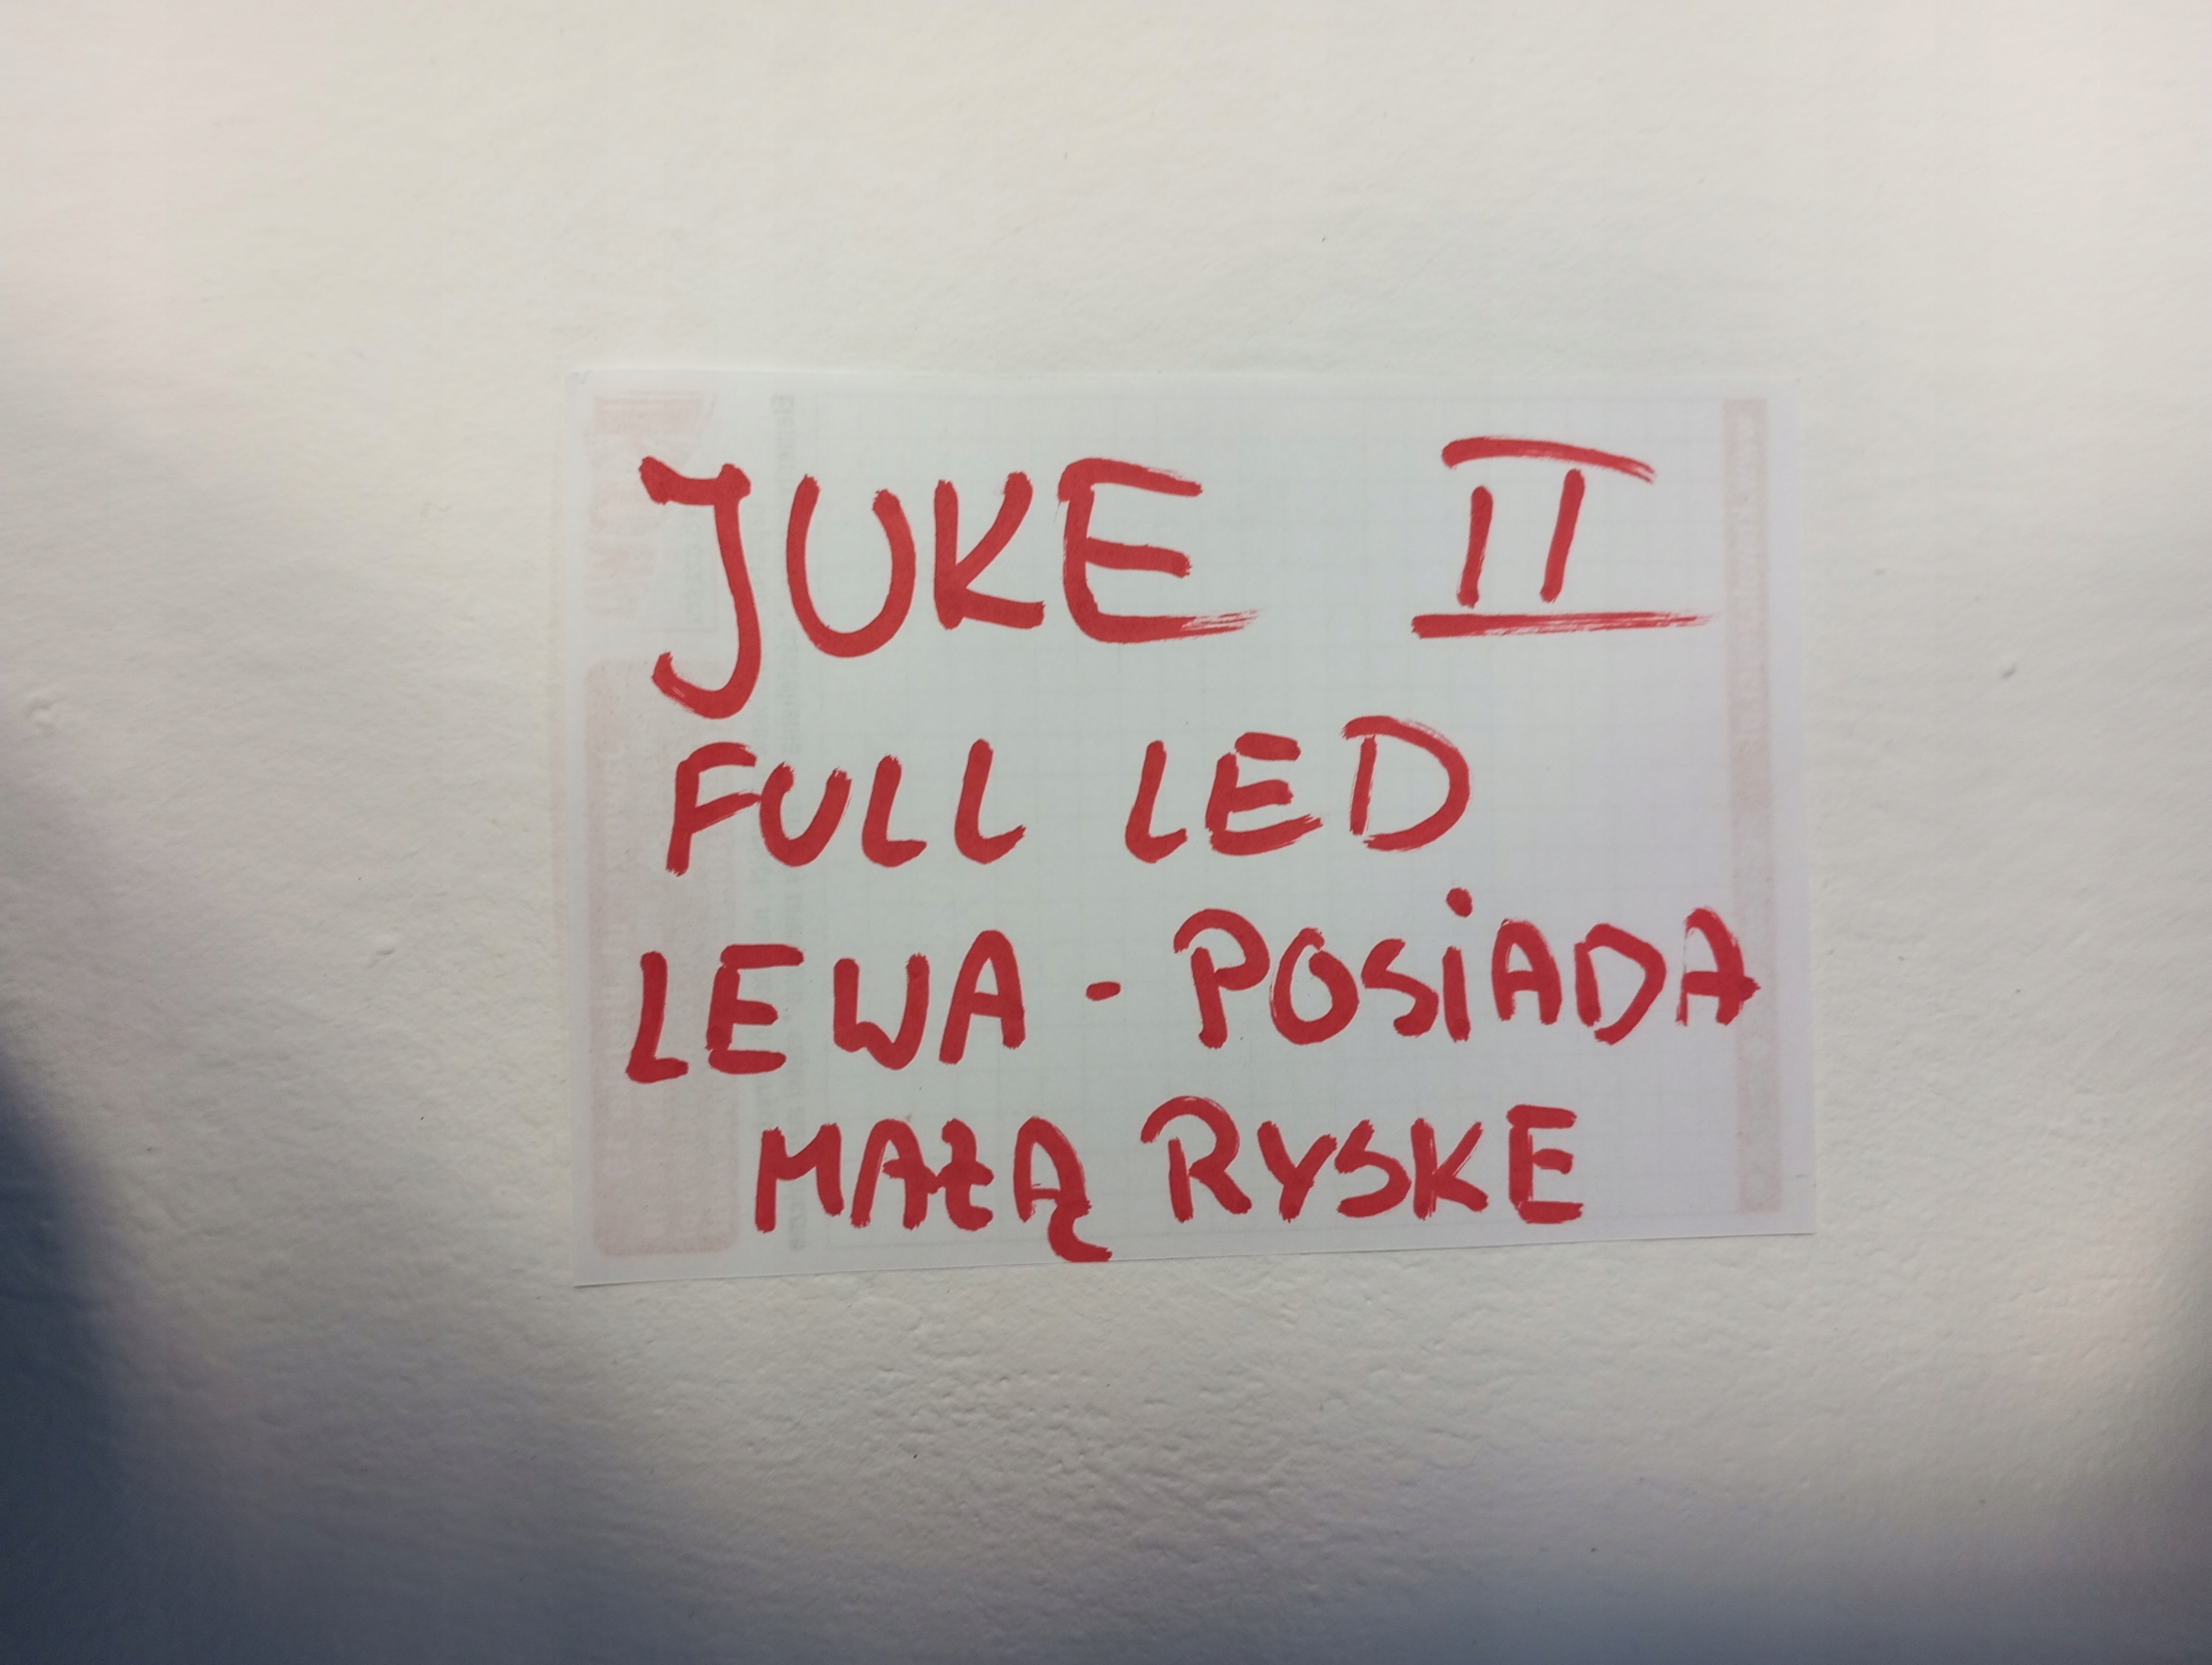 JUKE II
FULL LED
LEWA - POSiADA
MAŁĄ RYSKE